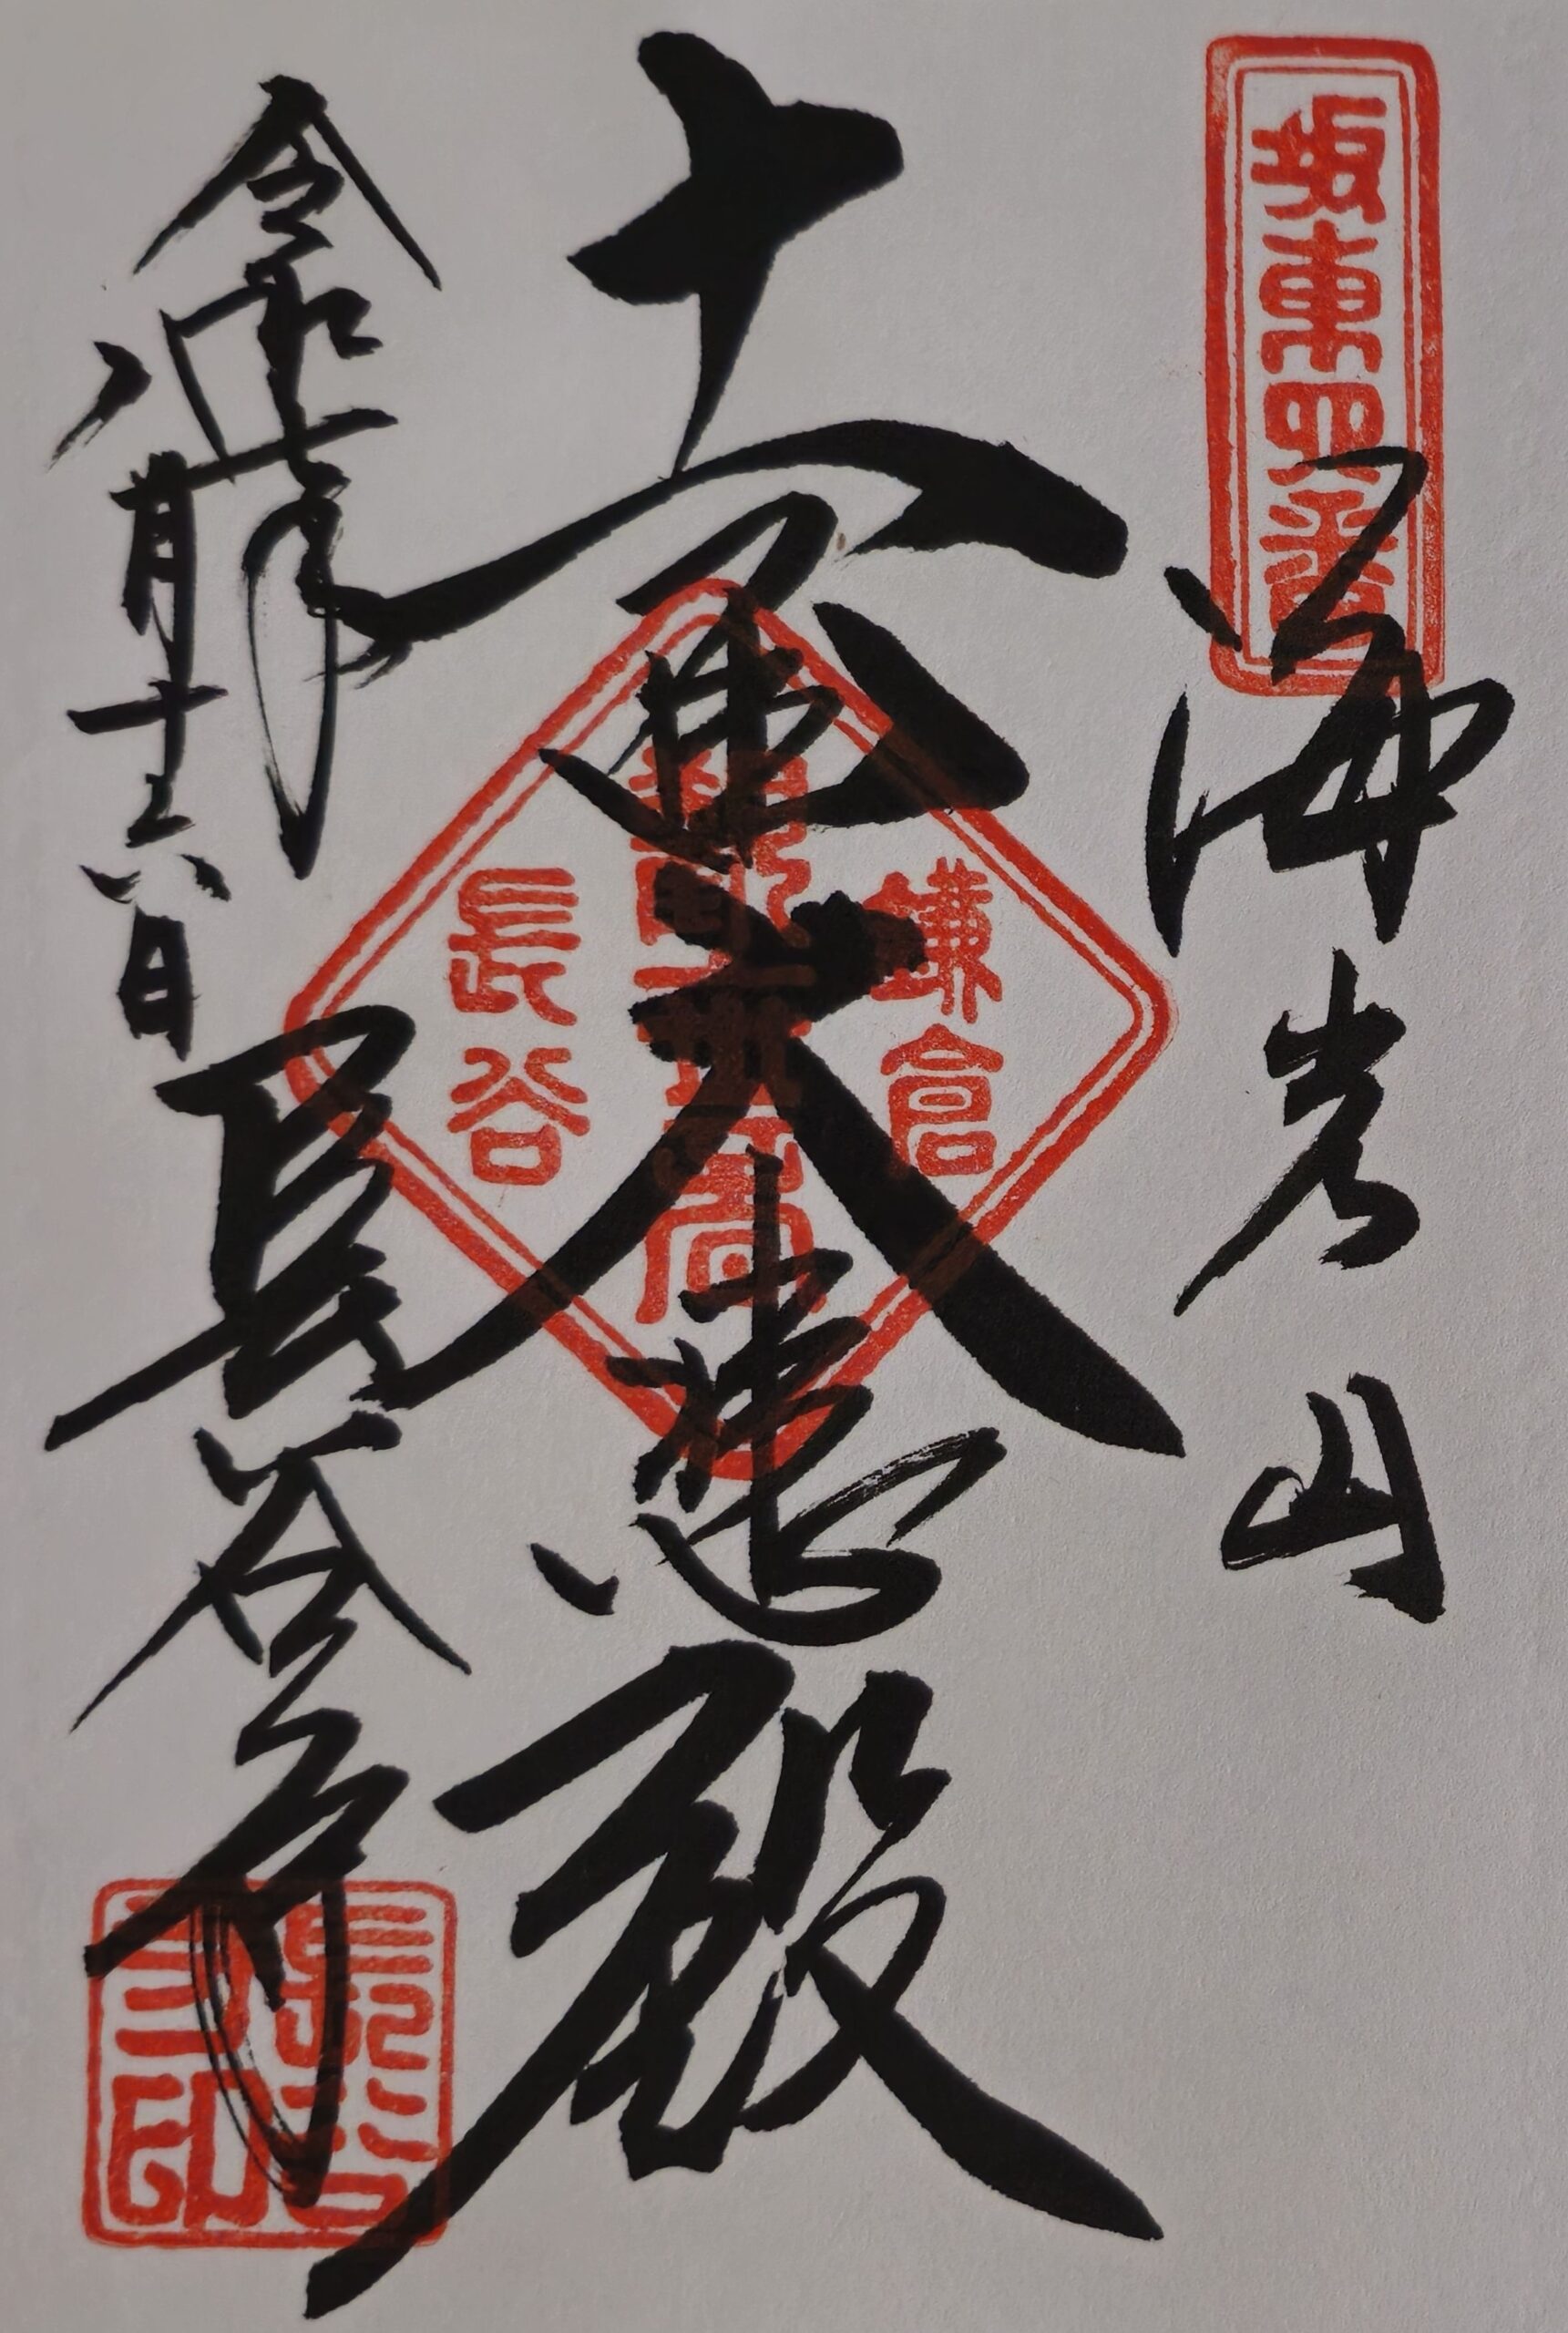 坂東四番
海光山
十一面大悲殿
鎌倉
長谷
令和七年
八月十六日
長谷寺